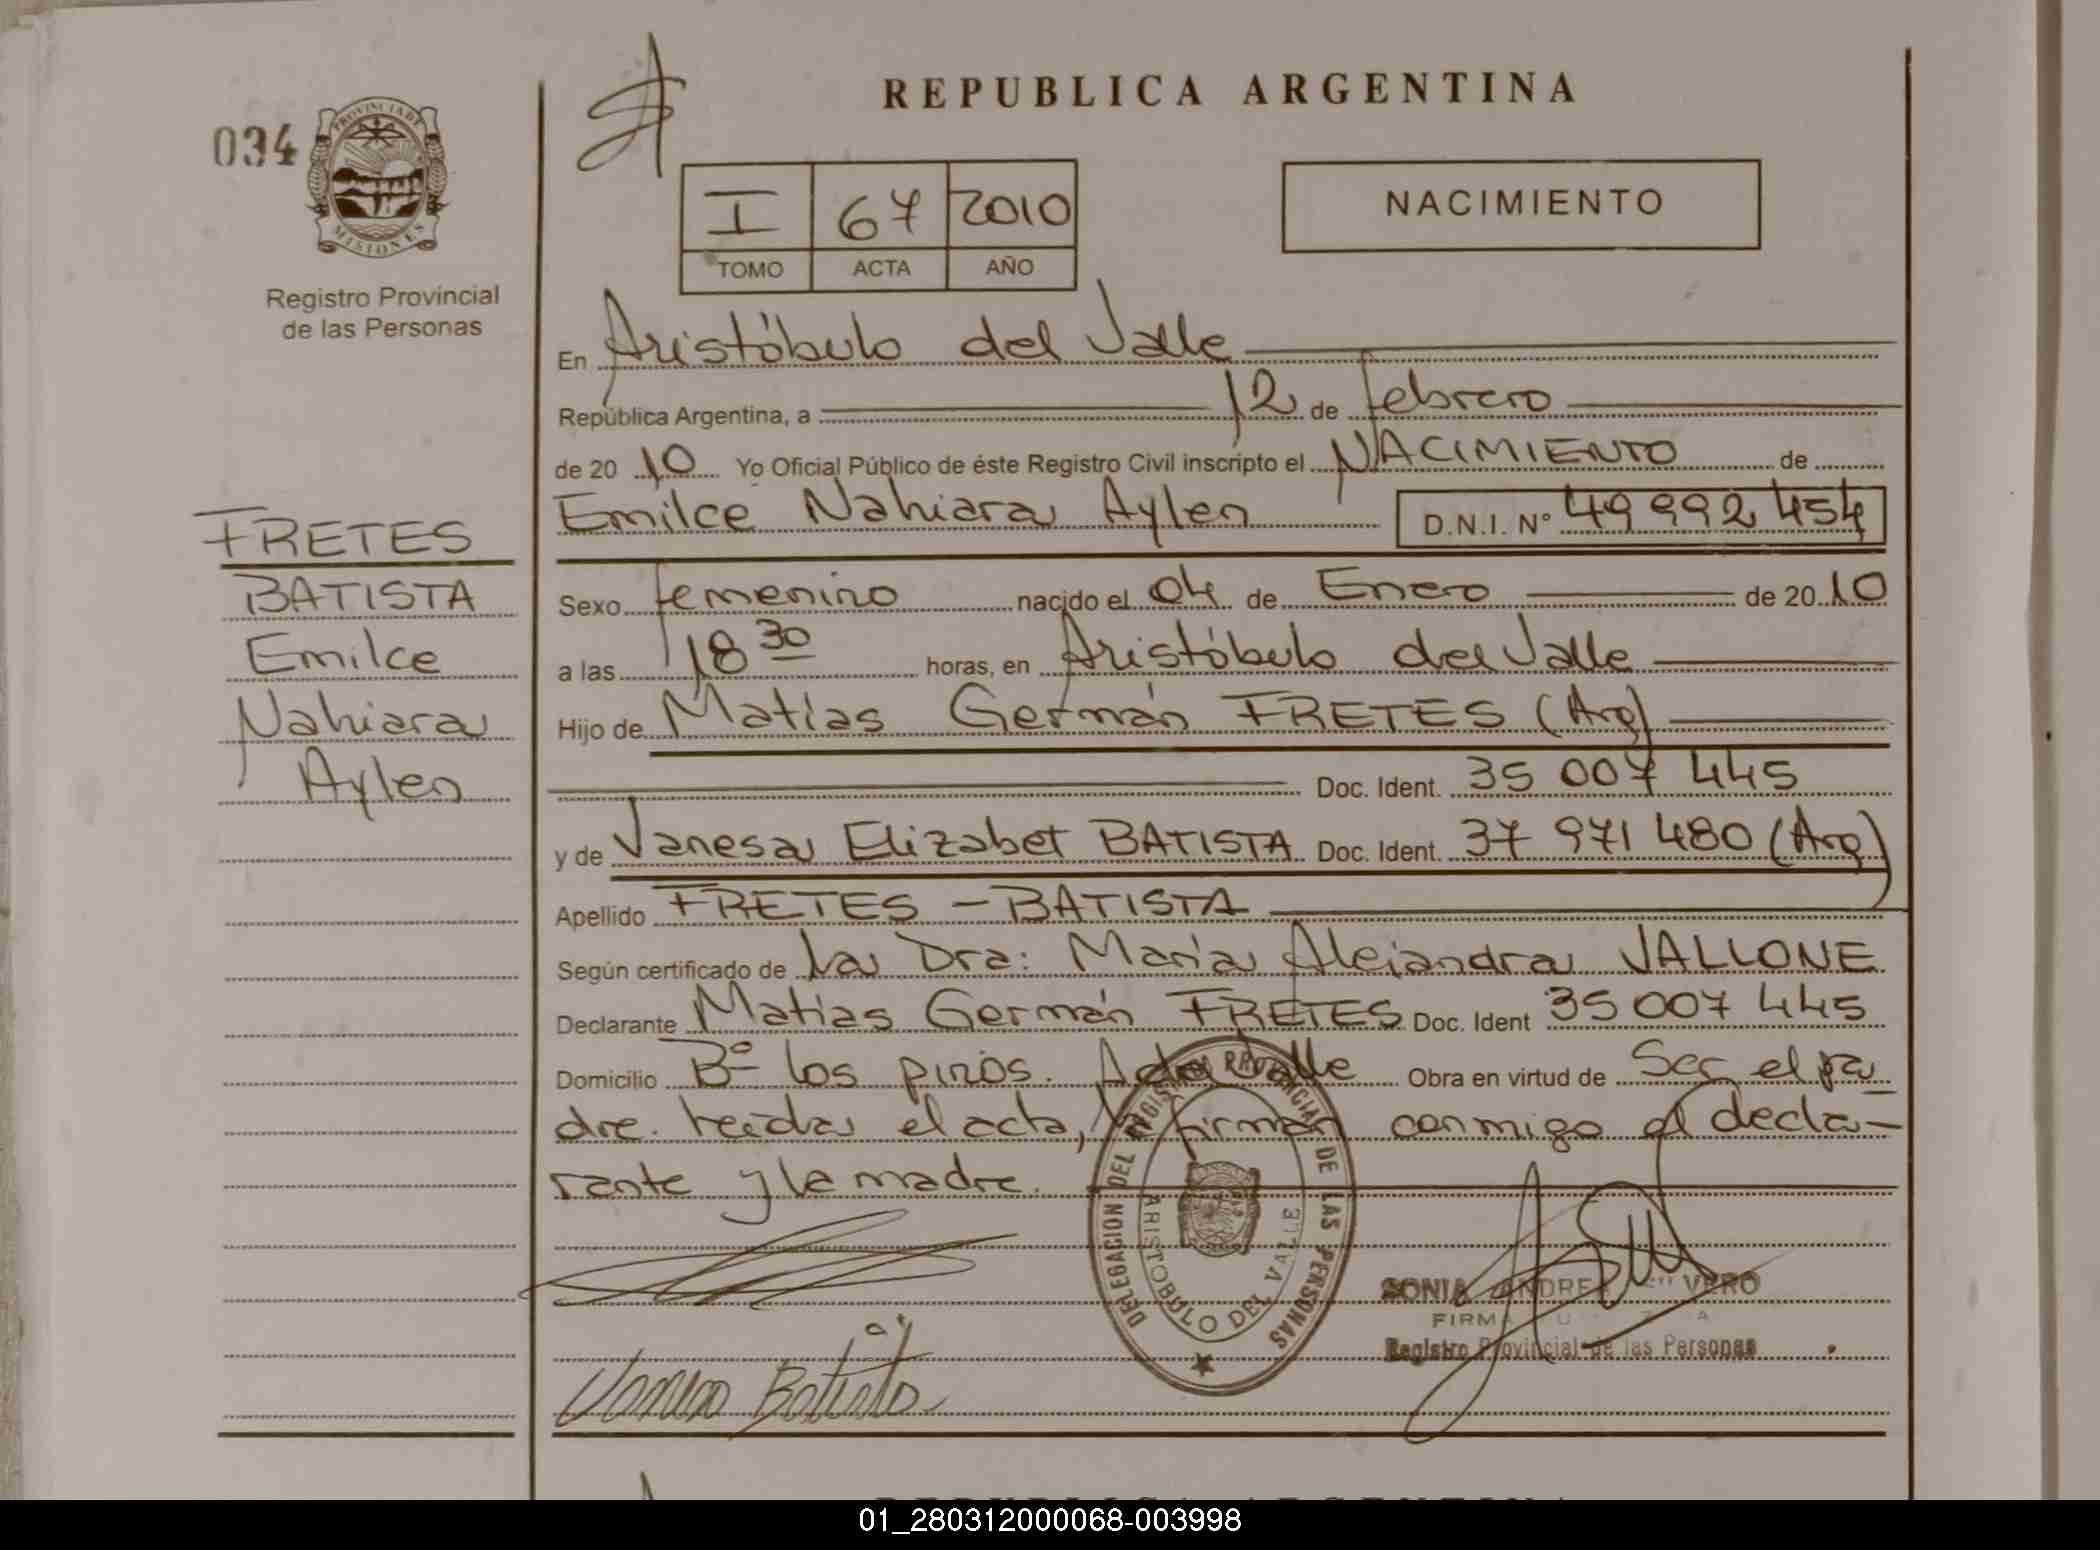 REPUBLICA ARGENTINA
034
PROVINCIA DE
MISIONES
Registro Provincial
de las Personas
I 67 2010
TOMO ACTA AÑO
NACIMIENTO
FRETES
BATISTA
Emilce
Nahiara
Aylen
En Aristóbulo del Valle
República Argentina, a 12 de febrero
de 20 10 Yo Oficial Público de éste Registro Civil inscripto el NACIMIENTO de
Emilce Nahiara Aylen D.N.I. N° 49 992 454
Sexo femenino nacido el 04 de Enero de 20 10
a las 18 30 horas, en Aristóbulo del Valle
Hijo de Matías Germán FRETES (Arg)
Doc. Ident. 35 007 445
y de Vanesa Elizabet BATISTA Doc. Ident. 37 971 480 (Arg)
Apellido FRETES - BATISTA
Según certificado de La Dra: María Alejandra VALLONE
Declarante Matías Germán FRETES Doc. Ident 35 007 445
Domicilio Bº los pinos. A del Valle Obra en virtud de Ser el pa
dre. Leída el acta, firman conmigo el decla-
rante y la madre.
DELEGACION DEL REGISTRO PROVINCIAL DE LAS PERSONAS
ARISTOBULO DEL VALLE
SONIA ANDREA
Registro Provincial de las Personas
Vanesa Batista
01_280312000068-003998